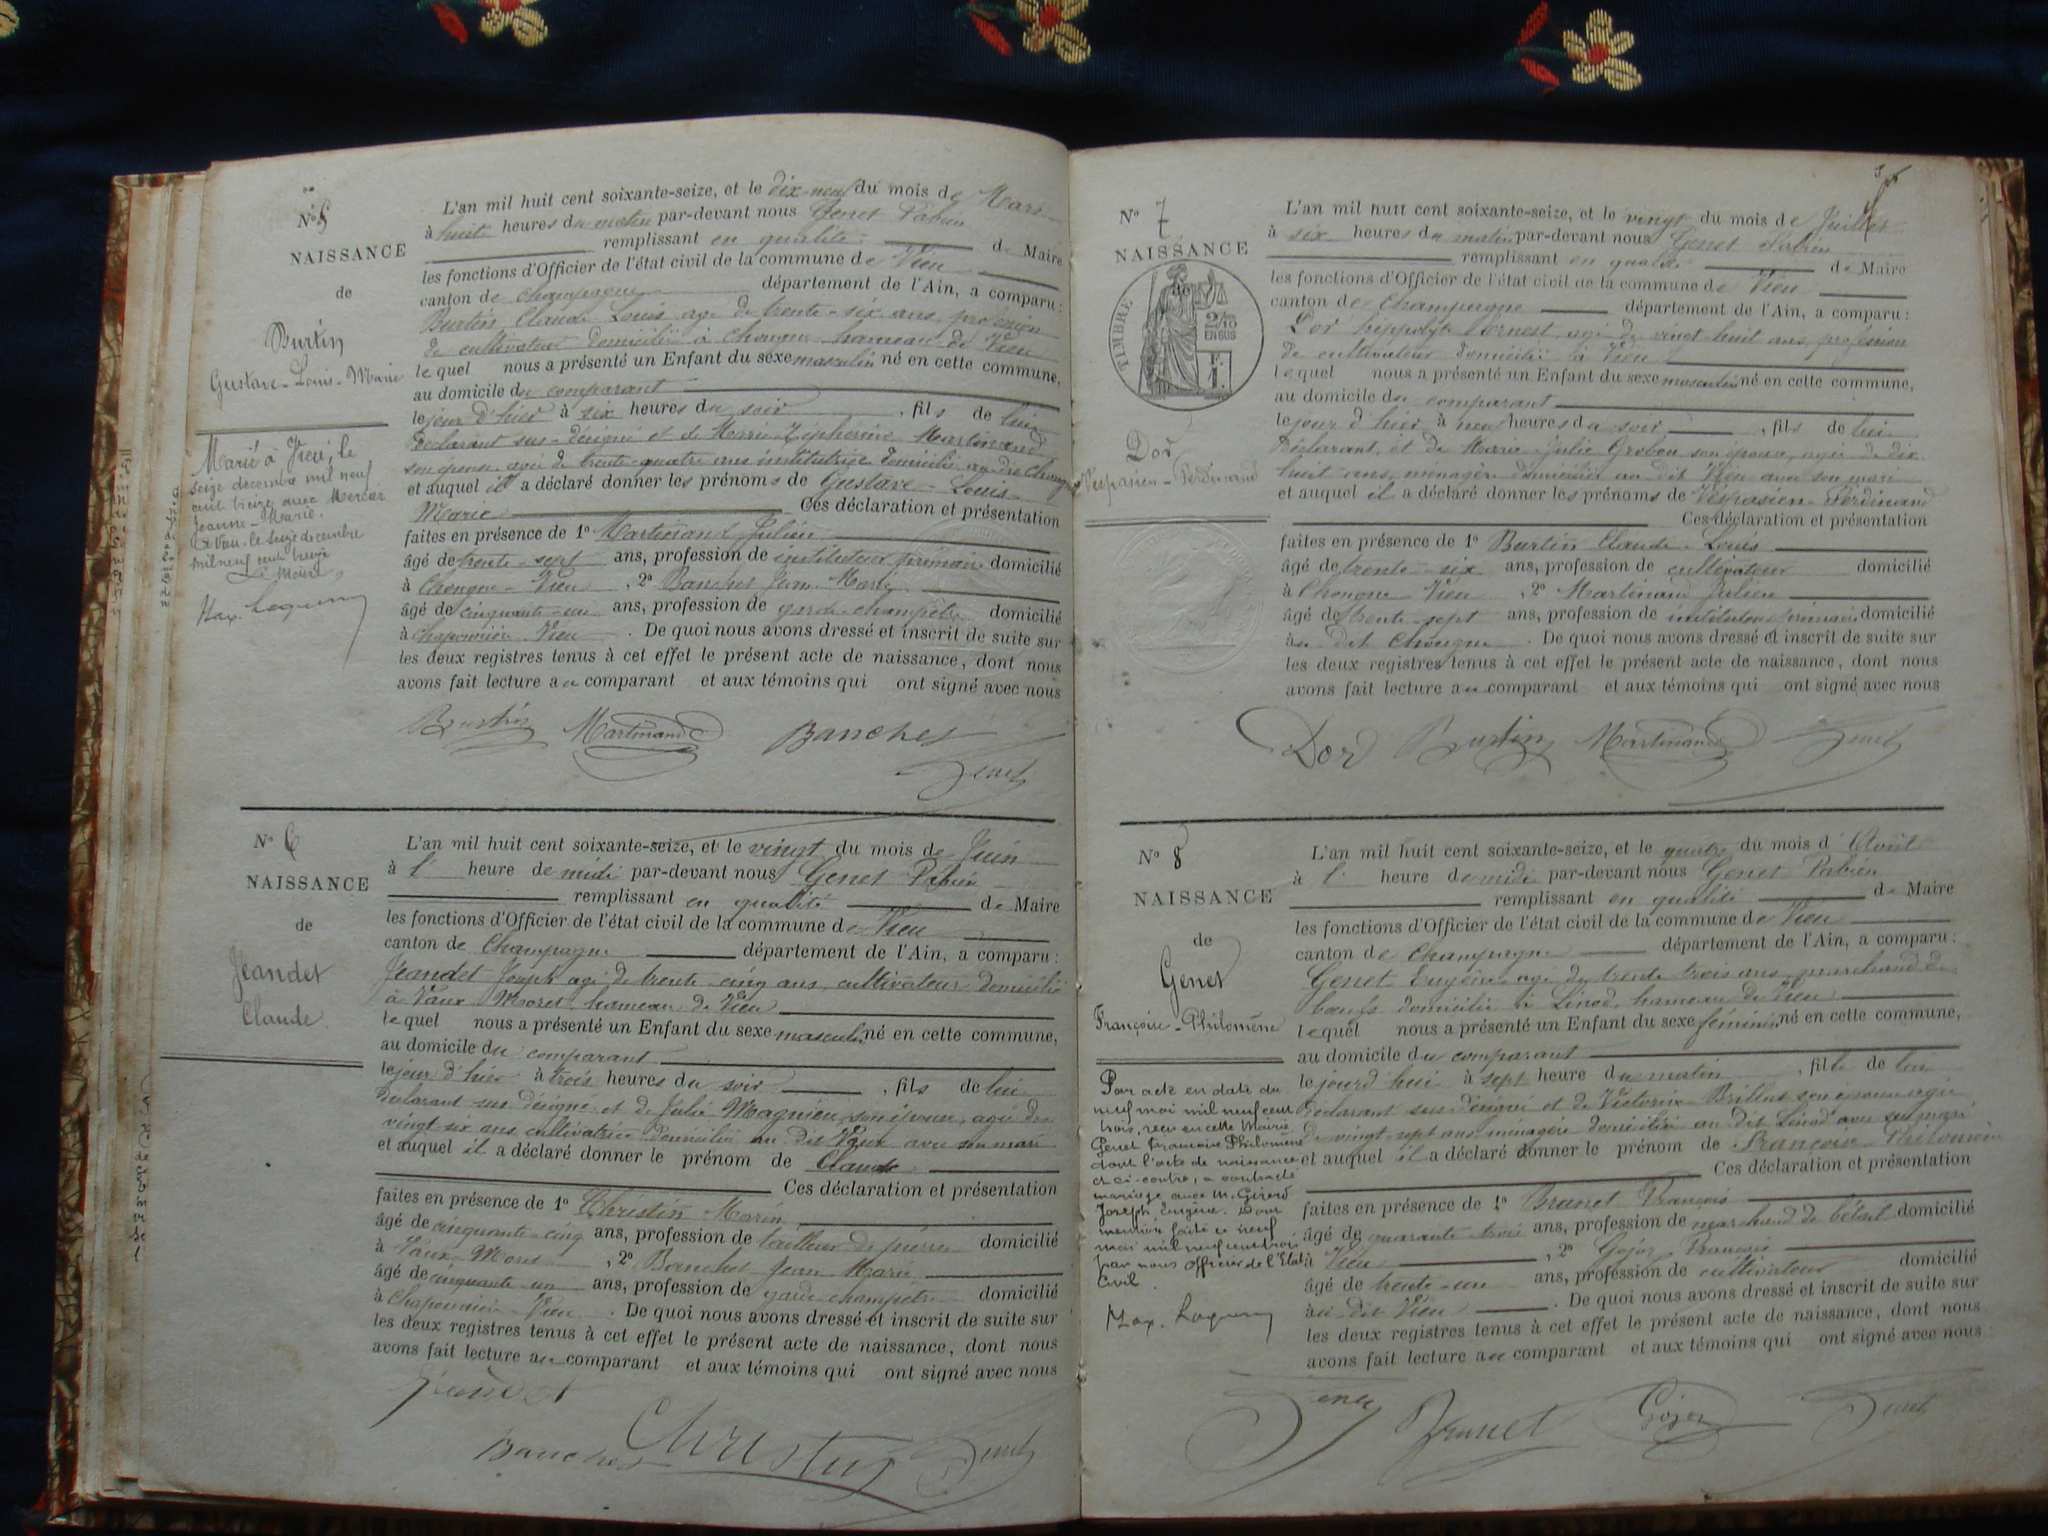 N° 5
NAISSANCE
de
Burtin
Gustave-Louis-Marie
Marié à Vieu, le
seize décembre mil neuf
cent treize avec Mercier
Jeanne-Marie.
Vieu, le seize décembre
mil neuf cent treize
Le Maire,
L'an mil huit cent soixante-seize, et le dix-neuf du mois de Mars
à huit heures du matin par-devant nous Genet Fabien
remplissant en qualité de Maire
les fonctions d'Officier de l'état civil de la commune de Vieu
canton de Champagne département de l'Ain, a comparu :
Burtin Claude Louis agé de trente-six ans, profession
de cultivateur domicilié à Chongne hameau de Vieu
lequel nous a présenté un Enfant du sexe masculin né en cette commune,
au domicile du comparant
le jour d'hier à six heures du soir, fils de lui
Déclarant sus-désigné et de Marie Zéphérine Martinand
son épouse agée de trente-quatre ans institutrice domiciliée au dit Chongne
et auquel il a déclaré donner les prénoms de Gustave-Louis-
Marie Ces déclaration et présentation
faites en présence de 1° Martinand Julien
âgé de trente-sept ans, profession de instituteur primaire domicilié
à Chongne-Vieu, 2° Banchet Jean-Marie
âgé de cinquante-un ans, profession de garde-champêtre domicilié
à Chaponnier-Vieu. De quoi nous avons dressé et inscrit de suite sur
les deux registres tenus à cet effet le présent acte de naissance, dont nous
avons fait lecture au comparant et aux témoins qui ont signé avec nous
Burtin Martinand Banchet
Genet
N° 6
NAISSANCE
de
Jeandet
Claude
L'an mil huit cent soixante-seize, et le vingt du mois de Juin
à l' heure de midi par-devant nous Genet Fabien
remplissant en qualité de Maire
les fonctions d'Officier de l'état civil de la commune de Vieu
canton de Champagne département de l'Ain, a comparu :
Jeandet Joseph agé de trente-cinq ans, cultivateur domicilié
à Vaux-Moret hameau de Vieu
lequel nous a présenté un Enfant du sexe masculin né en cette commune,
au domicile du comparant
le jour d'hier à trois heures du soir, fils de lui
Déclarant sus-désigné et de Julie Magnieu son épouse, agée de
vingt-six ans cultivatrice domiciliée au dit Vaux avec son mari
et auquel il a déclaré donner le prénom de Claude
Ces déclaration et présentation
faites en présence de 1° Christin Marin
âgé de cinquante-cinq ans, profession de tailleur de pierre domicilié
à Vaux-Moret, 2° Banchet Jean Marie
âgé de cinquante un ans, profession de garde-champêtre domicilié
à Chaponnier-Vieu. De quoi nous avons dressé et inscrit de suite sur
les deux registres tenus à cet effet le présent acte de naissance, dont nous
avons fait lecture au comparant et aux témoins qui ont signé avec nous
Jeandet
Banchet Christin Genet
N° 7
NAISSANCE
de
TIMBRE
2/10
EN SUS
Dor
Vespasien-Ferdinand
L'an mil huit cent soixante-seize, et le vingt du mois de Juillet
à six heures du matin par-devant nous Genet Fabien
remplissant en qualité de Maire
les fonctions d'Officier de l'état civil de la commune de Vieu
canton de Champagne département de l'Ain, a comparu :
Dor hippolyte Ernest, agé de vingt-huit ans, profession
de cultivateur domicilié à Vieu
lequel nous a présenté un Enfant du sexe masculin né en cette commune,
au domicile du comparant
le jour d'hier à neuf heures du soir, fils de lui
Déclarant, et de Marie-Julie Grobon son épouse, agée de dix
huit ans, ménagère domiciliée au dit Vieu avec son mari
et auquel il a déclaré donner les prénoms de Vespasien-Ferdinand
Ces déclaration et présentation
faites en présence de 1° Burtin Claude-Louis
âgé de trente-six ans, profession de cultivateur domicilié
à Chongne Vieu, 2° Martinand Julien
âgé de trente-sept ans, profession de instituteur primaire domicilié
au dit Chongne. De quoi nous avons dressé et inscrit de suite sur
les deux registres tenus à cet effet le présent acte de naissance, dont nous
avons fait lecture au comparant et aux témoins qui ont signé avec nous
Dor Burtin Martinand Genet
N° 8
NAISSANCE
de
Genet
Françoise-Philomène
Par acte en date du
neuf mai mil neuf cent
trois, reçu en cette Mairie
Genet Françoise Philomène
dont l'acte de naissance
est ci-contre, a contracté
mariage avec M. Girerd
Joseph Eugène. Dont
mention faite ce neuf
mai mil neuf cent trois
par nous officier de l'Etat
Civil.
L'an mil huit cent soixante-seize, et le quatre du mois d'Août
à l' heure de midi par-devant nous Genet Fabien
remplissant en qualité de Maire
les fonctions d'Officier de l'état civil de la commune de Vieu
canton de Champagne département de l'Ain, a comparu :
Genet Eugène agé de trente trois ans, marchand de
boeufs domicilié à Linod, hameau de Vieu
lequel nous a présenté un Enfant du sexe féminin né en cette commune,
au domicile du comparant
le jourd'hui à sept heure du matin, fille de lui
Déclarant sus-désigné et de Victorine Brillat son épouse agée
de vingt-sept ans ménagère domiciliée au dit Linod avec son mari
et auquel il a déclaré donner le prénom de Françoise-Philomène
Ces déclaration et présentation
faites en présence de 1° Brunet François
âgé de quarante-trois ans, profession de marchand de bétail domicilié
à Vieu, 2° Gojoz François
âgé de trente-un ans, profession de cultivateur domicilié
au dit Vieu. De quoi nous avons dressé et inscrit de suite sur
les deux registres tenus à cet effet le présent acte de naissance, dont nous
avons fait lecture au comparant et aux témoins qui ont signé avec nous
Genet Brunet Gojoz Genet